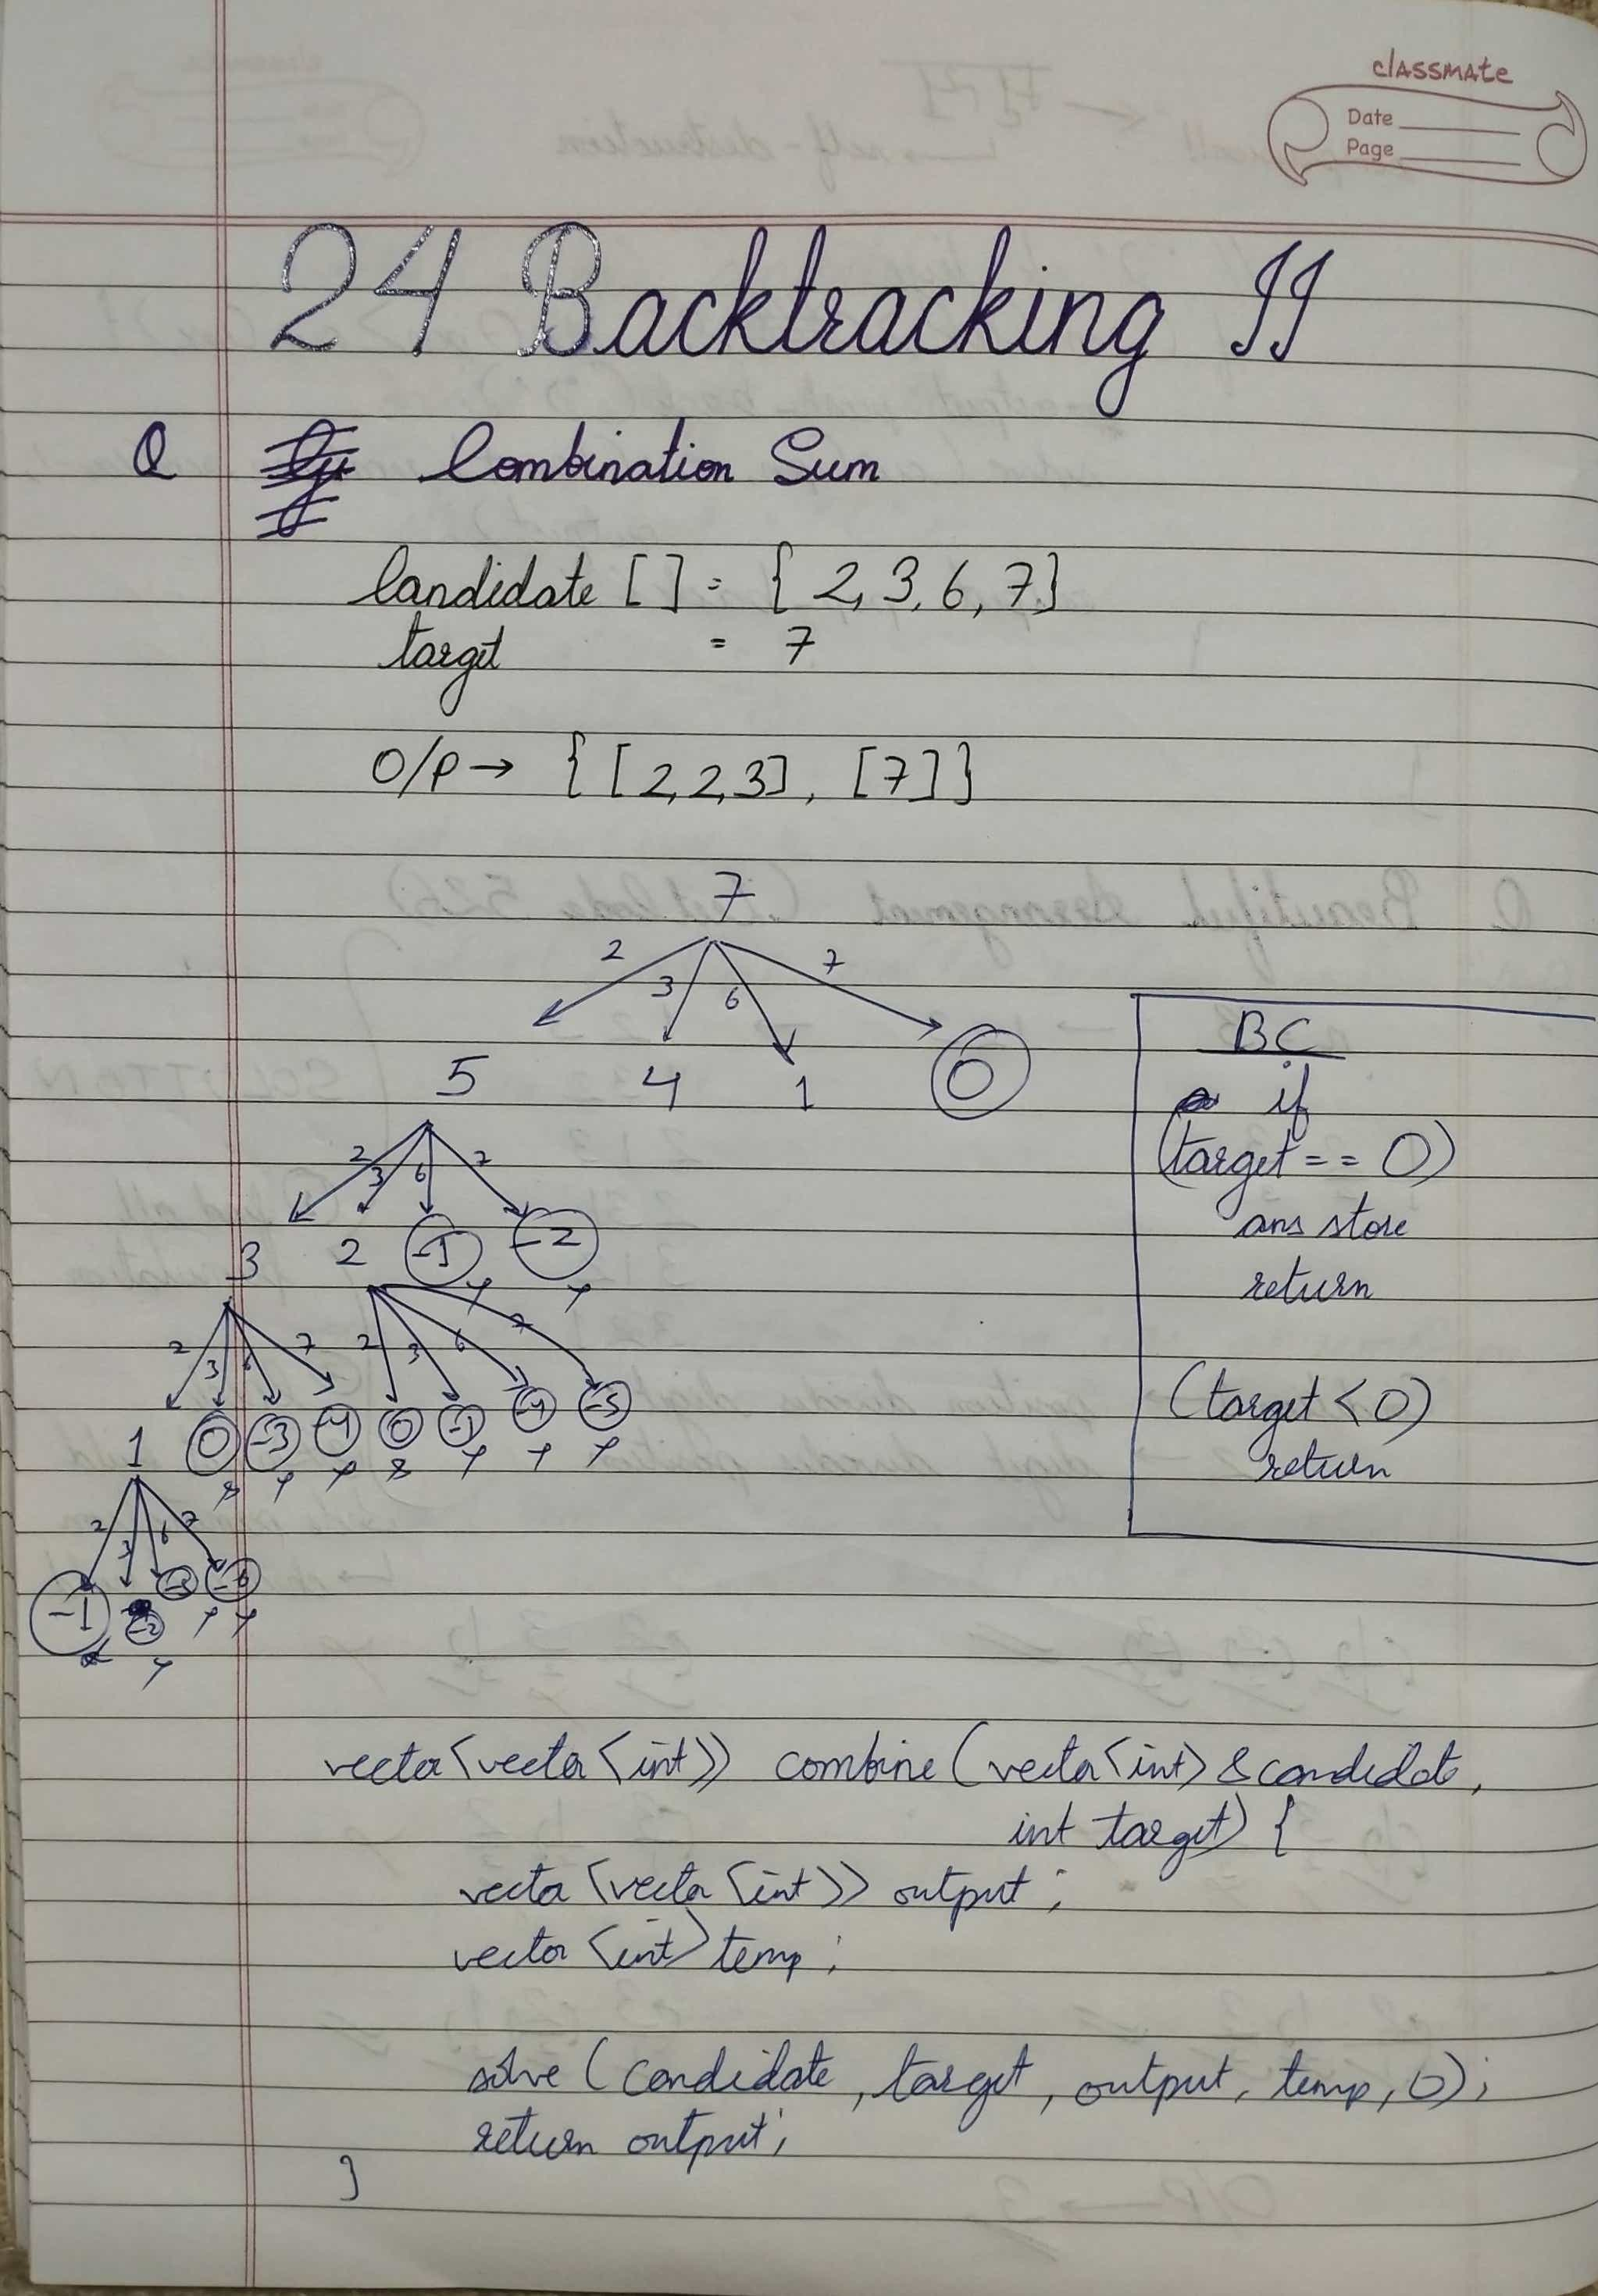 classmate
Date
Page
24 Backtracking II
Q Combination Sum
Candidate [ ] = { 2, 3, 6, 7}
target = 7
O/P → { [2,2,3], [7]}
7
2 3 6 7
5 4 1 0
2 3 6 7
3 2 -1 -2
2 3 6 7 2 3 6 7
1 0 -3 -4 0 -1 -4 -5
2 3 6 7
-1 -2 -6
BC
if
(target == 0)
ans store
return
(target < 0)
return
vector<vector<int>> combine (vector<int> &candidate,
int target) {
vector<vector<int>> output ;
vector<int> temp ;
solve ( candidate , target , output, temp, 0) ;
return output ;
}